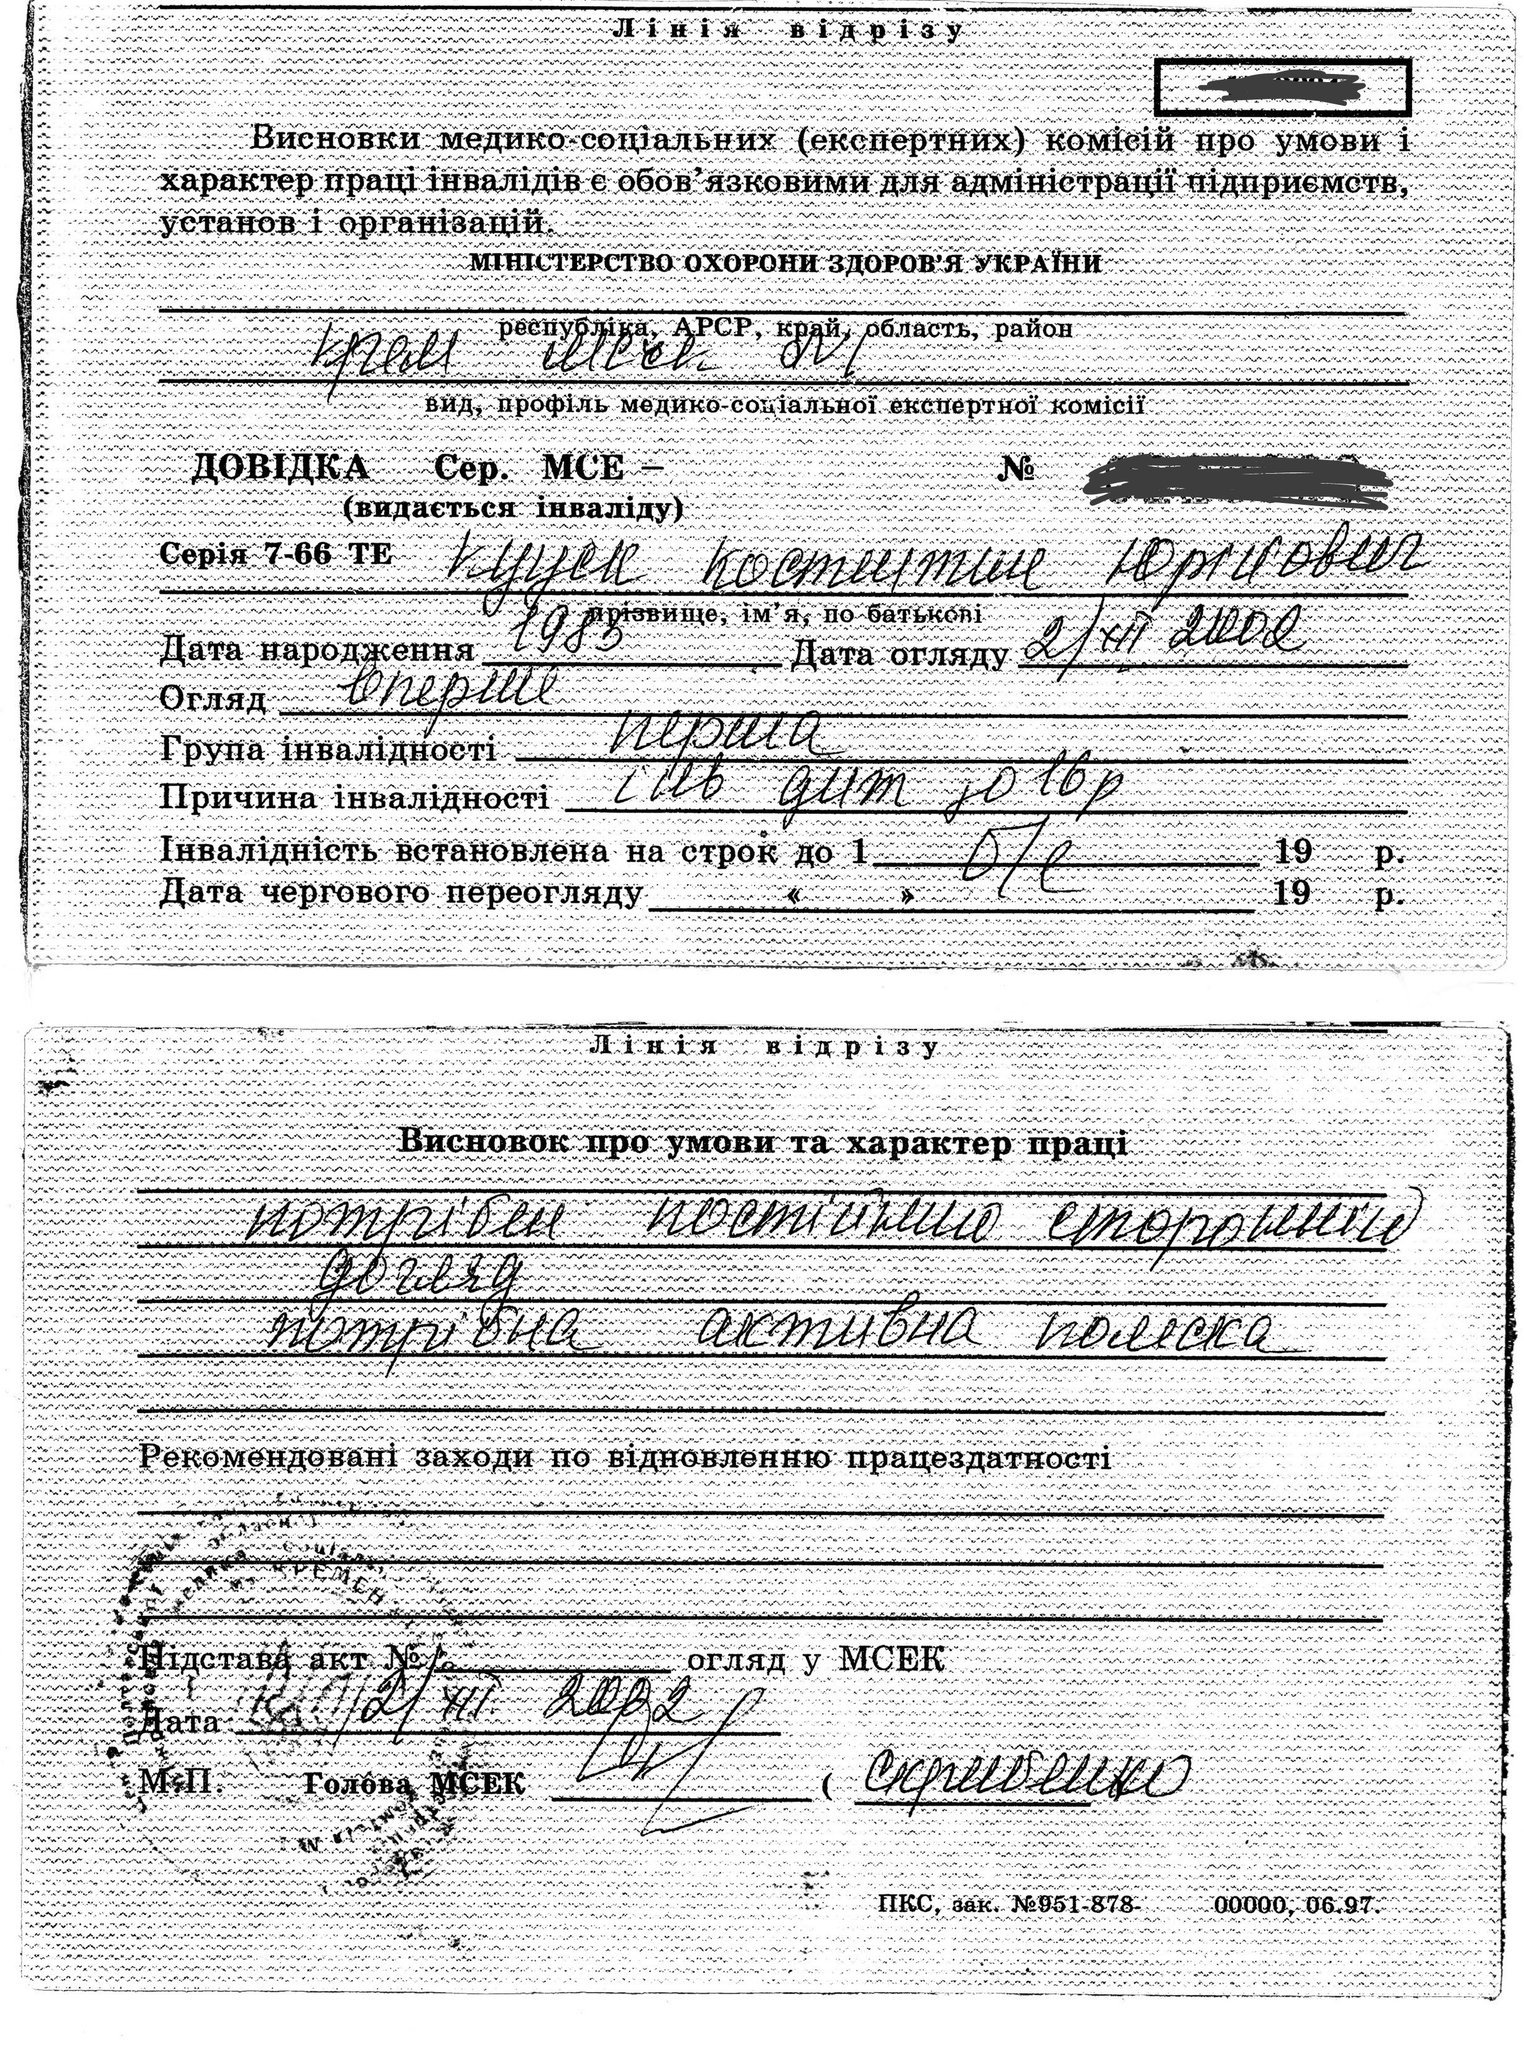 Лінія відрізу
Висновки медико-соціальних (експертних) комісій про умови і
характер праці інвалідів є обов’язковими для адміністрації підприємств,
установ і організацій.
МІНІСТЕРСТВО ОХОРОНИ ЗДОРОВ’Я УКРАЇНИ
республіка, АРСР, край, область, район
Крем МСЕК №1
вид, профіль медико-соціальної експертної комісії
ДОВІДКА Сер. МСЕ – №
(видається інваліду)
Серія 7-66 ТЕ Костянтин Юрійович
прізвище, ім’я, по батькові
Дата народження 1983 Дата огляду 2/XII 2002
Огляд вперше
Група інвалідності перша
Причина інвалідності інв дит до 16 р
Інвалідність встановлена на строк до 1 б/с 19 р.
Дата чергового переогляду « » 19 р.
Лінія відрізу
Висновок про умови та характер праці
потрібен постійний сторонній
догляд
потрібна активна коляска
Рекомендовані заходи по відновленню працездатності
Підстава акт № огляд у МСЕК
Дата 2/XII 2002
М.П. Голова МСЕК (
ПКС, зак. №951-878- 00000, 06.97.